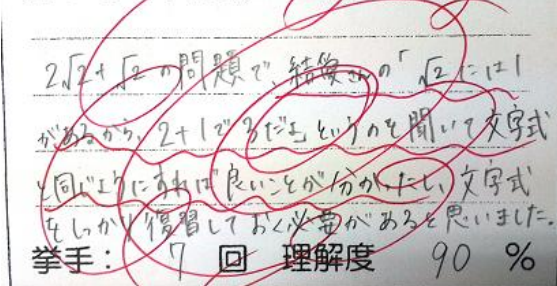 2√2+√2の問題で、結愛さんの「√2には1
があるから、2+1で3だよ」というのを聞いて文字式
と同じようにすれば良いことが分かったし、文字式
をしっかり復習しておく必要があると思いました。
挙手： 7 回 理解度 90 %